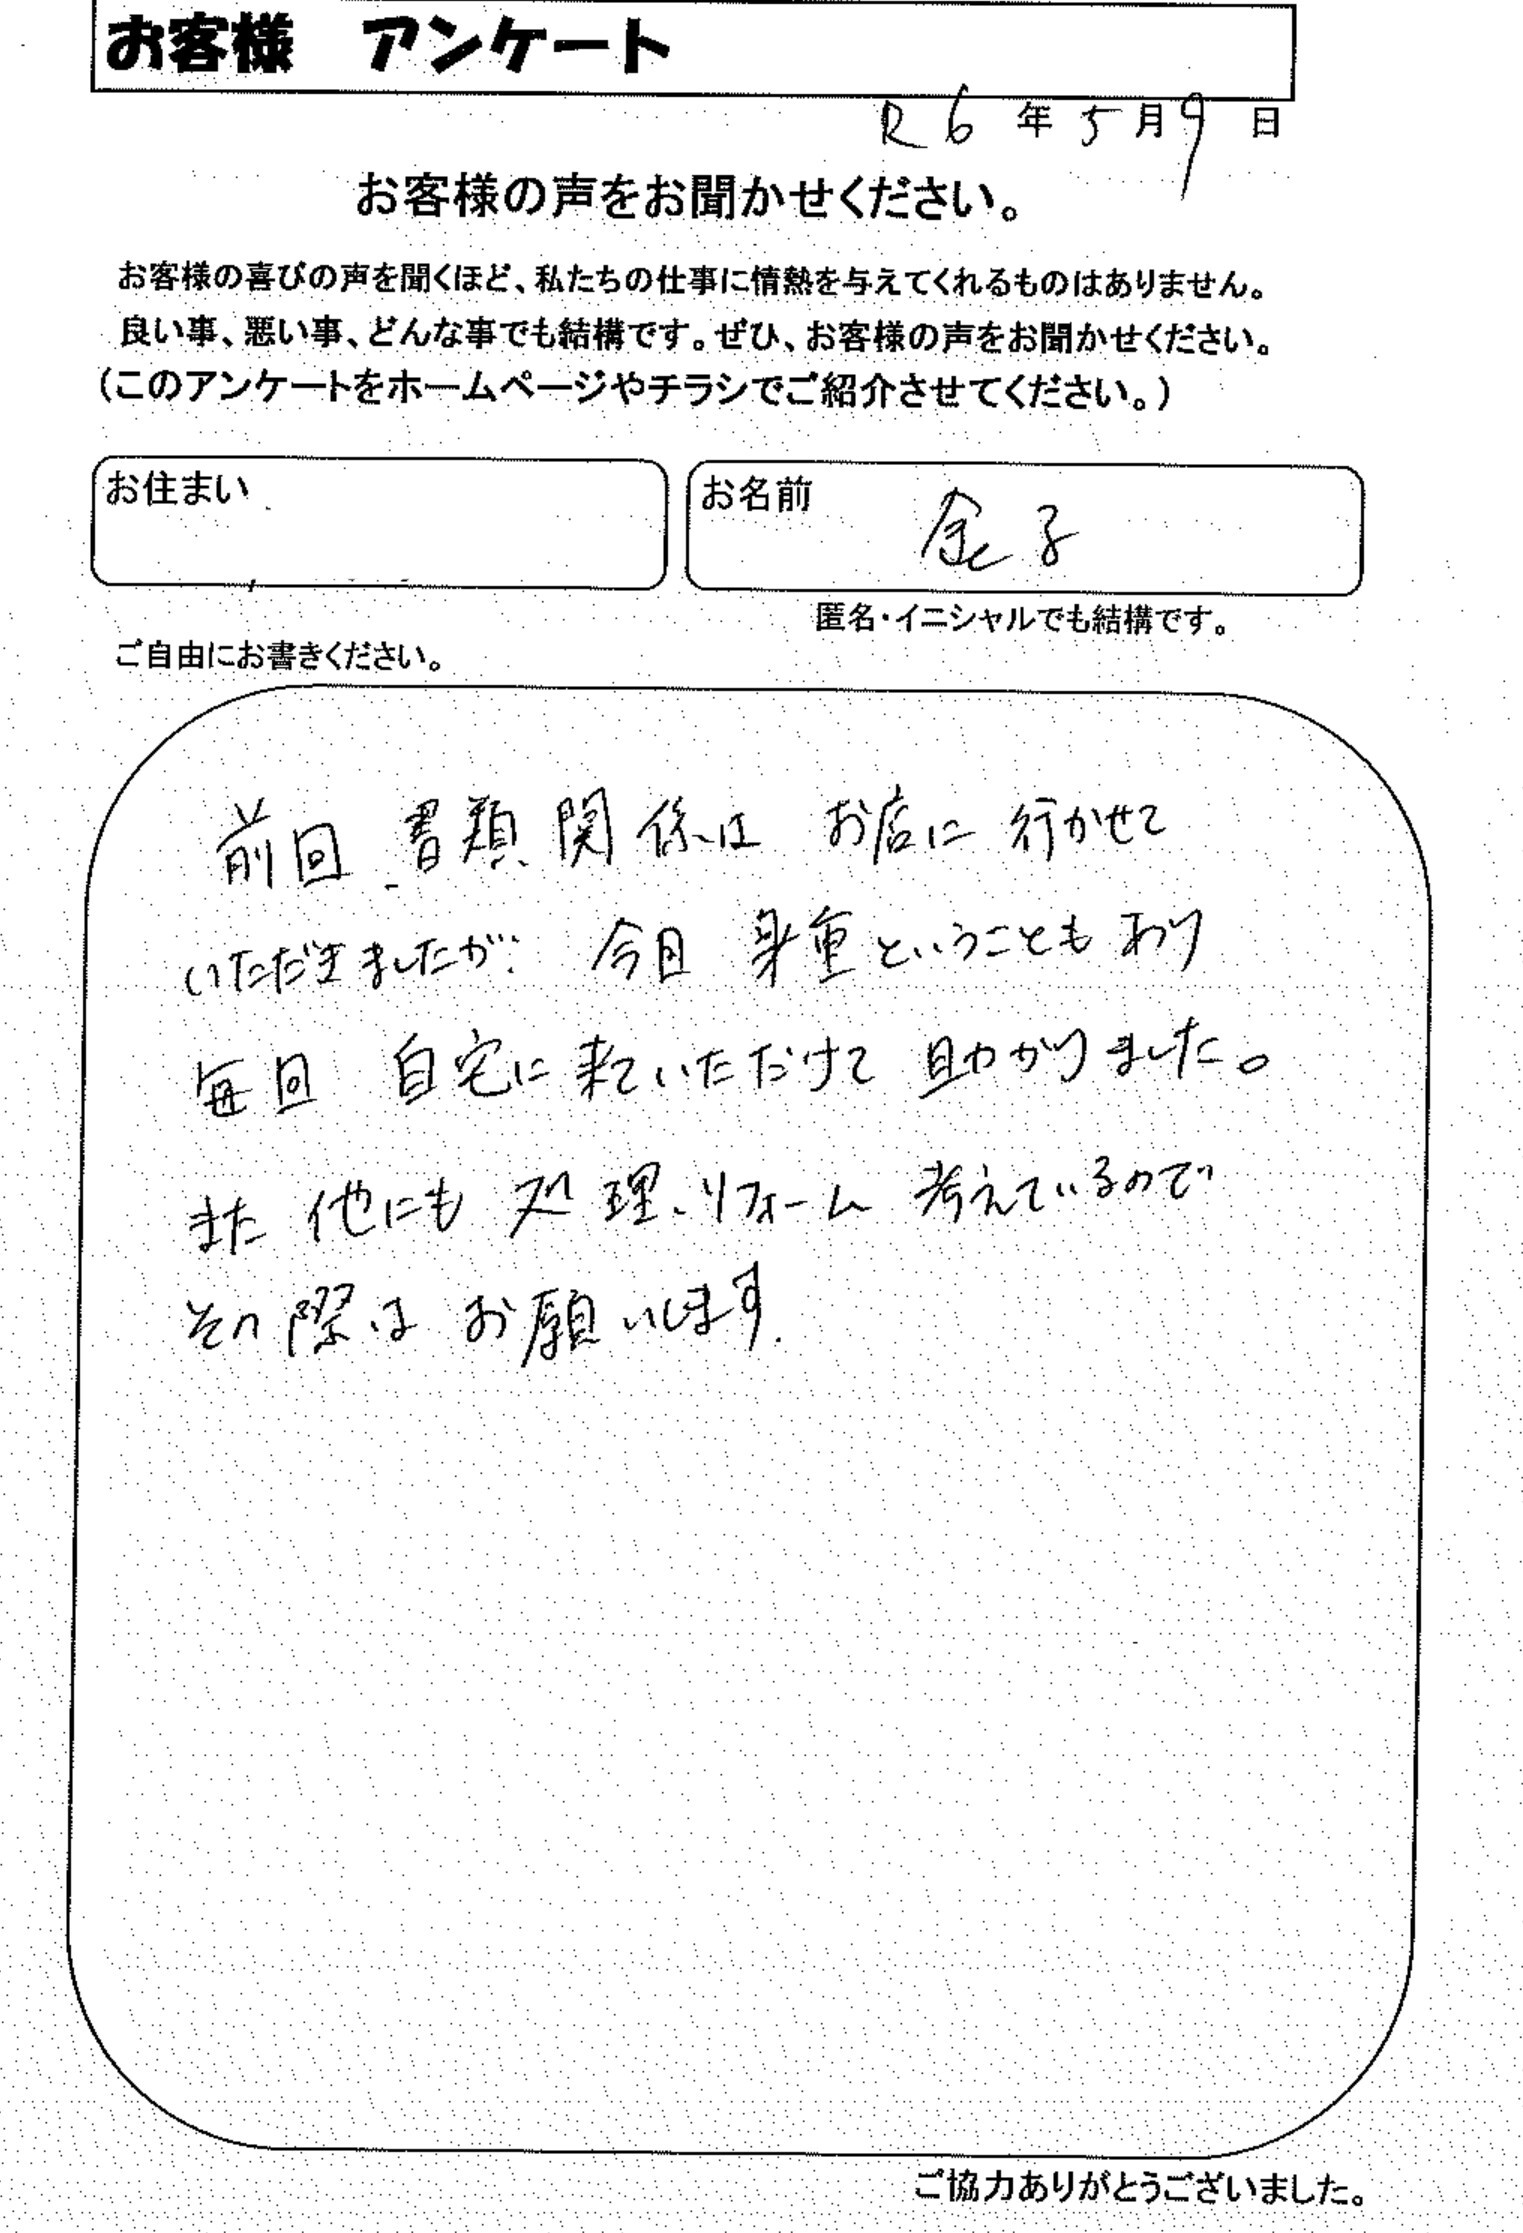 お客様　アンケート
R6年5月9日
お客様の声をお聞かせください。
お客様の喜びの声を聞くほど、私たちの仕事に情熱を与えてくれるものはありません。
良い事、悪い事、どんな事でも結構です。ぜひ、お客様の声をお聞かせください。
(このアンケートをホームページやチラシでご紹介させてください。)
お住まい
お名前　金子
匿名・イニシャルでも結構です。
ご自由にお書きください。
前回 書類関係は お店に 行かせて
いただきましたが 今回 身重ということもあり
毎回 自宅に来ていただけて 助かりました。
また 他にも 処理、リフォーム 考えているので
その際は お願いします.
ご協力ありがとうございました。